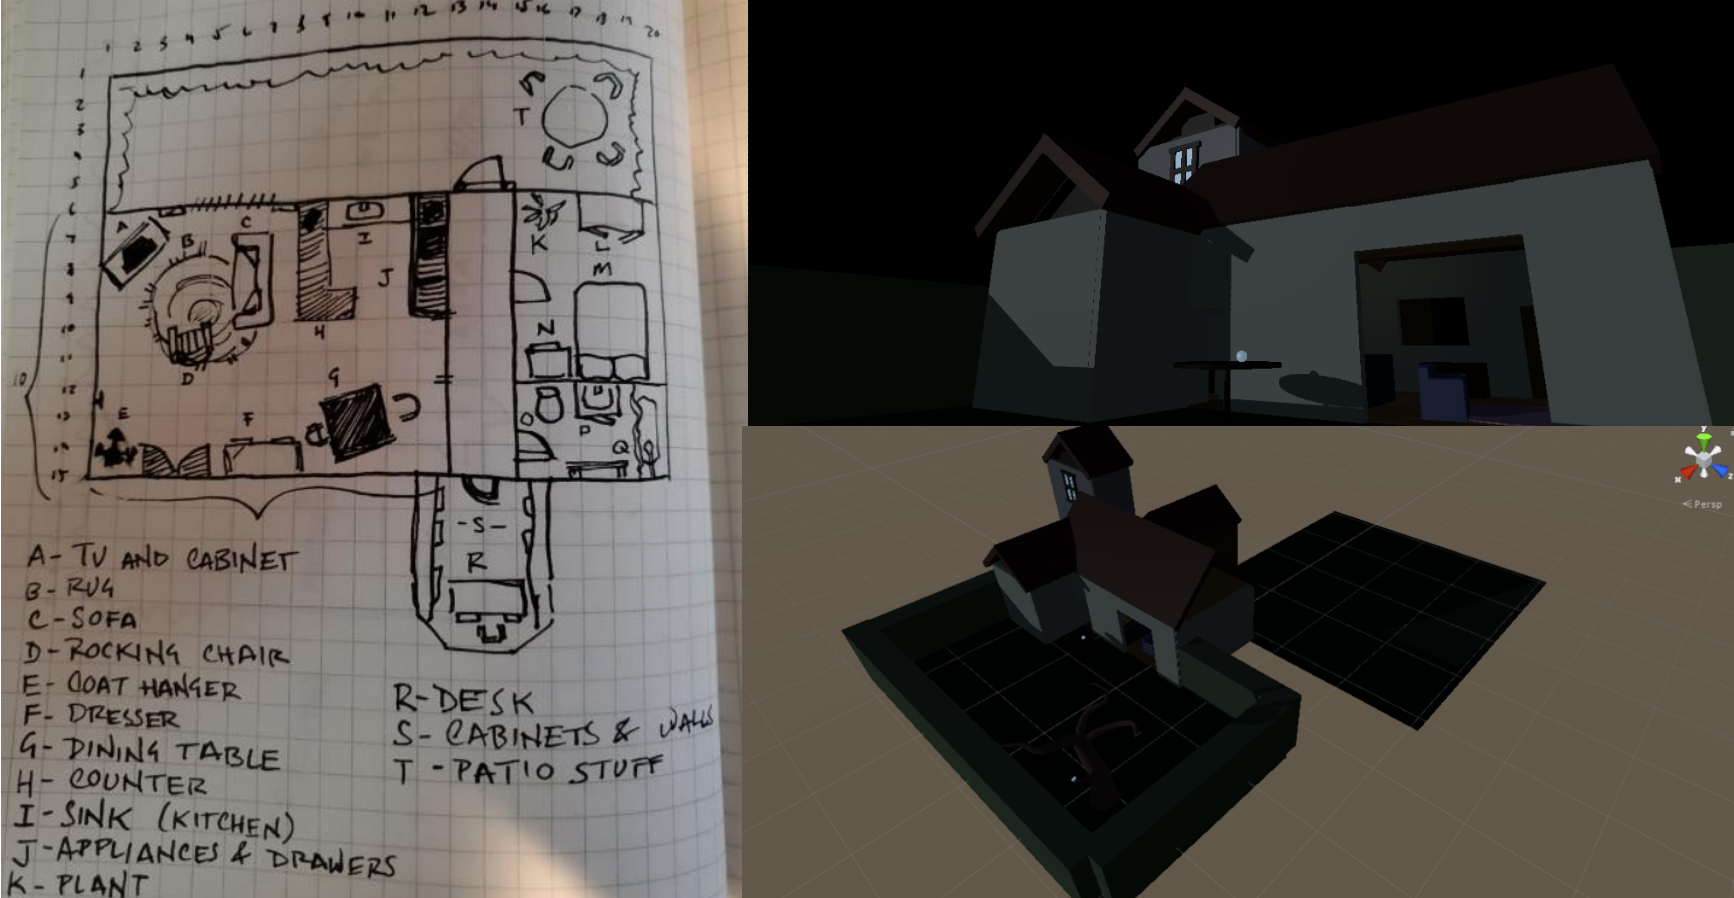 1 2 3 4 5 6 7 8 9 10 11 12 13 14 15 16 17 18 19 20
1
2
3
4
5
6
7
8
9
10
11
12
13
14
15
10
T
A
B
C
I
J
K
L
M
H
N
D
G
E
F
O
P
Q
-S-
R
A- TV AND CABINET
B- RUG
C- SOFA
D- ROCKING CHAIR
E- COAT HANGER
F- DRESSER
G- DINING TABLE
H- COUNTER
I- SINK (KITCHEN)
J- APPLIANCES & DRAWERS
K- PLANT
R- DESK
S- CABINETS & WALLS
T - PATIO STUFF
y
x
z
< Persp